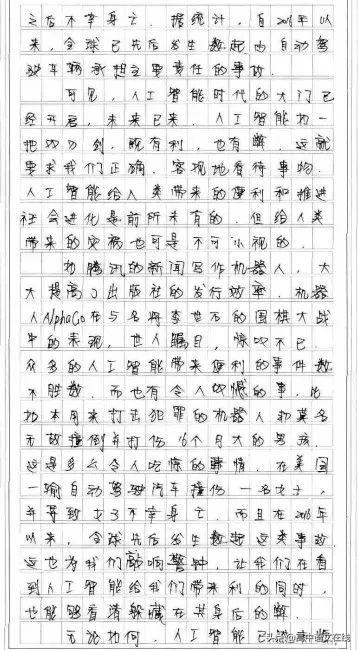 之后不幸身亡。据统计，自2016年以
来，全球已先后发生数起由自动驾
驶车辆承担主要责任的事故。
可见，人工智能时代的大门已
经开启，未来已来。人工智能如一
把双刃剑，既有利，也有弊。这就
要求我们正确、客观地看待事物。
人工智能给人类带来的便利和推进
社会进化是前所未有的，但给人类
带来的灾祸也可是不可小视的。
如腾讯的新闻写作机器人，大
大提高了出版社的发行效率。机器
人AlphaGo在与名将李世石的围棋大战
中的表现，世人瞩目，惊叹不已。
众多的人工智能带来便利的事件数
不胜数。而也有令人叹憾的事，比
如本用来打击犯罪的机器人却莫名
无故撞倒并打伤16个月大的男孩，
这是多么令人吃惊的事情。在美国
一辆自动驾驶汽车撞伤一名女士，
并导致女子不幸身亡。而且在2016年
以来，全球先后发生数起这类事故
这也为我们敲响警钟，让我们在看
到人工智能给我们带来利的同时，
也能够看清躲藏在其身后的弊。
无论如何，人工智能已
头条@高中语文在线